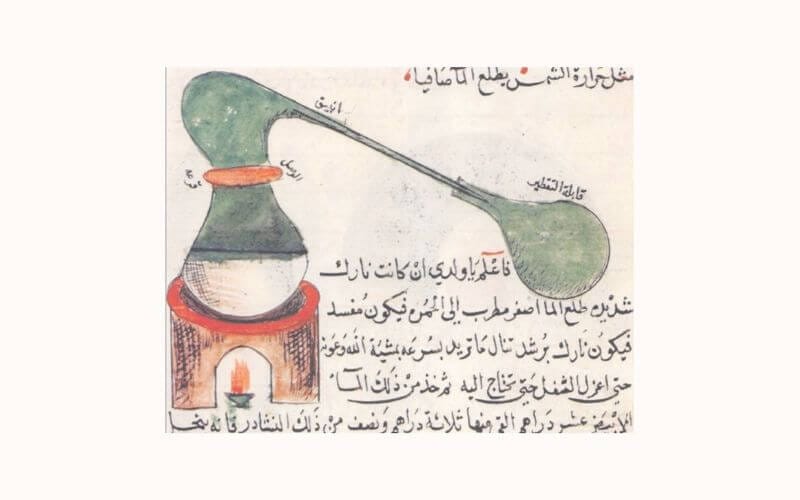 مثل حرارة الشمس يطلع الماء صافيا
انبيق
الوصل
قرعة
قابلة التقطير
فاعلم يا ولدي ان كانت نارك
شديده طلع الما اصفر مطرب إلى الحمره فيكون مُفسد
فيكون نارك برشد تنال ما تريد بسرعه بمشية الله وعونه
حتى اعزل الثفل حتى تحتاج اليه ثم خذ من ذلك المآء
عشر دراهم الق منها ثلاثة دراهم ونصف من ذلك النشادر فانه